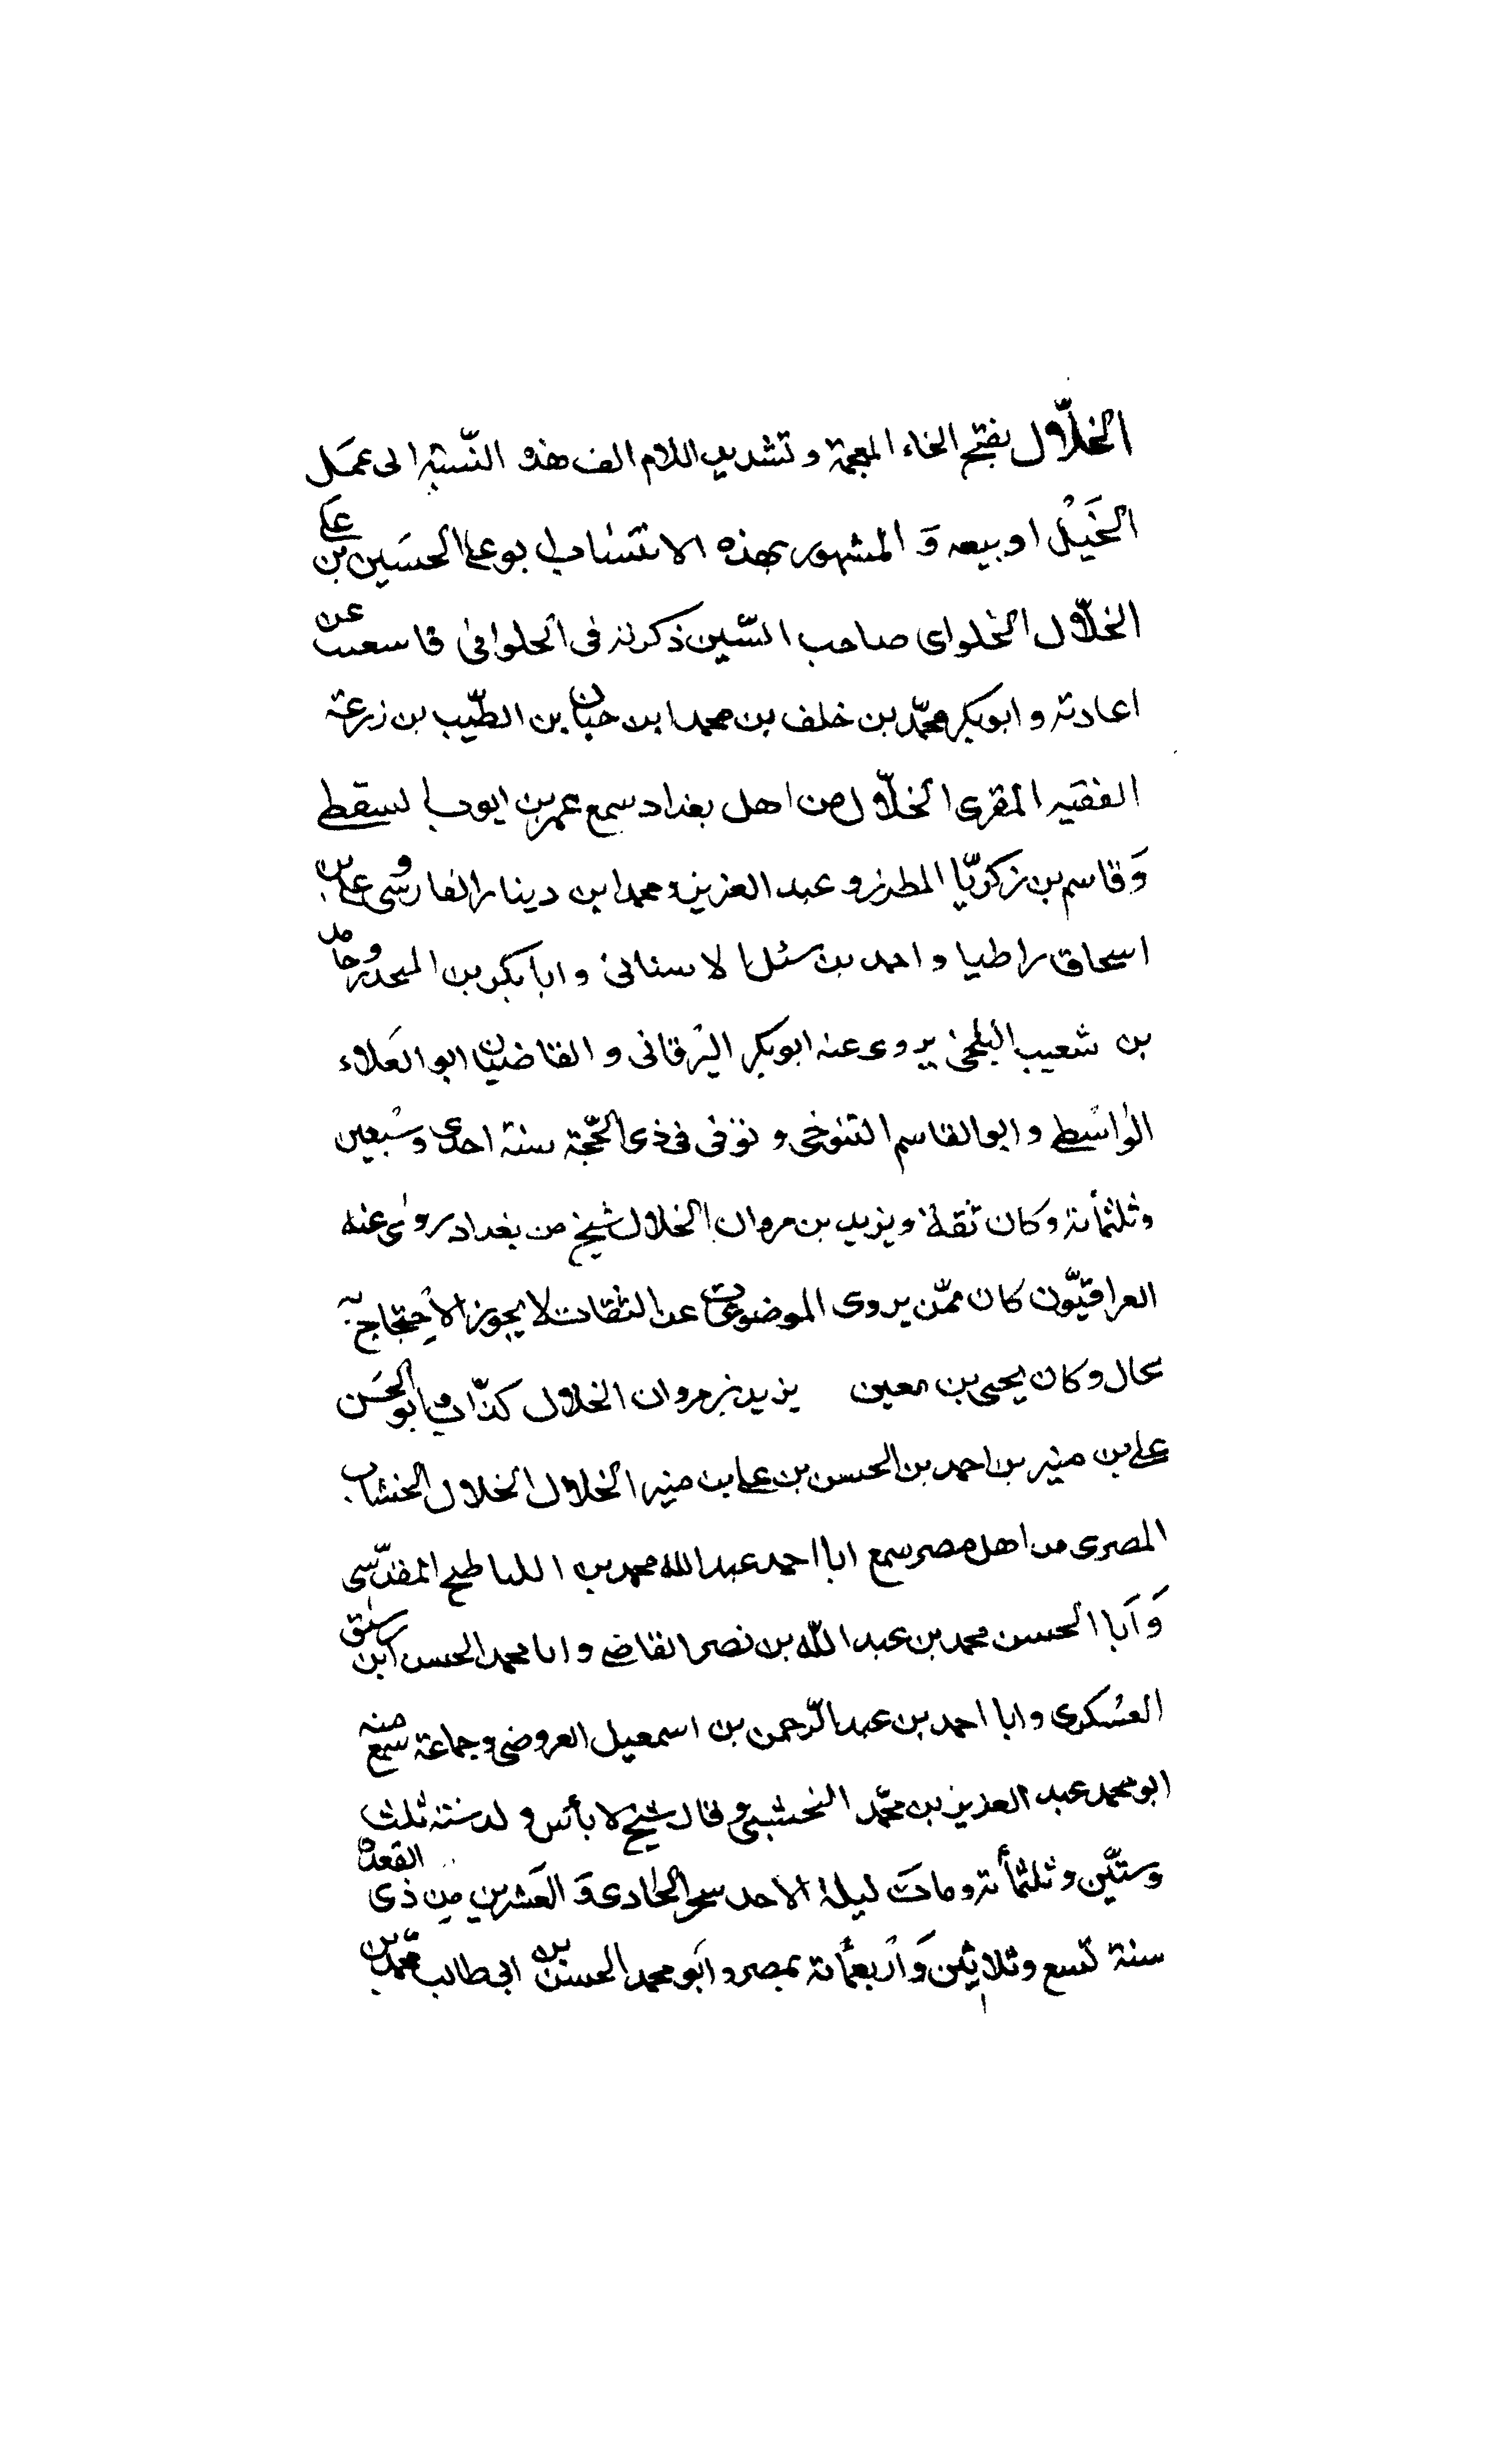 الخلّال بفتح الخاء المعجمة و تشديد اللام الف هذه النّسبة الى عمل
الخَيْل او بيعه وَ المشهور بهذه الانتساب ابو على الحسَين بن على
الخلّال الخلواى صاحب السّين ذكرته فى الحلوانى فاسعىىت عن
اعادته و ابوبكر محمّد بن خلف بن محمد ابن حيان بن الطيّب بن زرعة
الفقيه المقرى الخلّال من اهل بغداد سمع عمر بن ايوب السقطى
وَ قاسم بن زكريّا المطرز و عبد العزيز و محمد ابن دينار الفارسى و على بن
اسحاق راطيا و احمد بن سهل الاسنانى و ابا بكر بن المجدر و حامد
بن شعيب البلخى يروى عنه ابوبكر البرقانى و القاضيان ابو العَلاء
الواسطى و ابو القاسم التنوخى و توفى فى ذى الحجّة سنة احدى و سبعين
و ثلثمائة و كان ثقة و يزيد بن مروان الخلال شيخ من بغداد روى عنه
العراقيّون كان ممّن يروى الموضوعات عن الثقات لا يجوز الاحتجاج به
بحال و كان يحيى بن معين يزيد بن مروان الخلال كذّاب و ابو الحَسَن
على بن منير بن احمد بن الحسن بن على بن منير الخلال الخلال الخشاب
المصرى من اهل مصر سمع ابا احمد عبد الله محمد بن الىاطىح المقدّسى
وَ اَبا الحسن محمد بن عبد اللّه بن نصر القاضى و ابا محمد الحسن ابن رشيق
العسْكرى و ابا احمد بن عبد الرّحمن بن اسمعيل العروضى و جماعة سمع منه
ابو محمد عبد العزيز بن محمّد النخشبى و قال شيخ لا بأس و لد سنة ثلث
و ستّين و ثلثمأئة و ماتَ ليلة الاحد سحر الحادى وَ العَشرين مِن ذى القعده
سنة تسع و ثلاثين وَ اَربعمأئة بمصر و ابو محمد الحسن بن ابى طالب محمّد بن